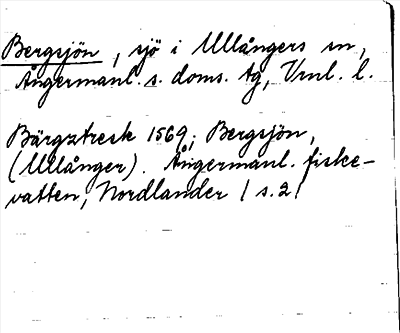 Bergsjön, sjö i Ullångers sn,
Ångermanl. s. doms. tg, Vrnl. l.
Bärgztresk 1569; Bergsjön,
(Ullånger). Ångermanl. fiske-
vatten, Nordlander 1 s. 21